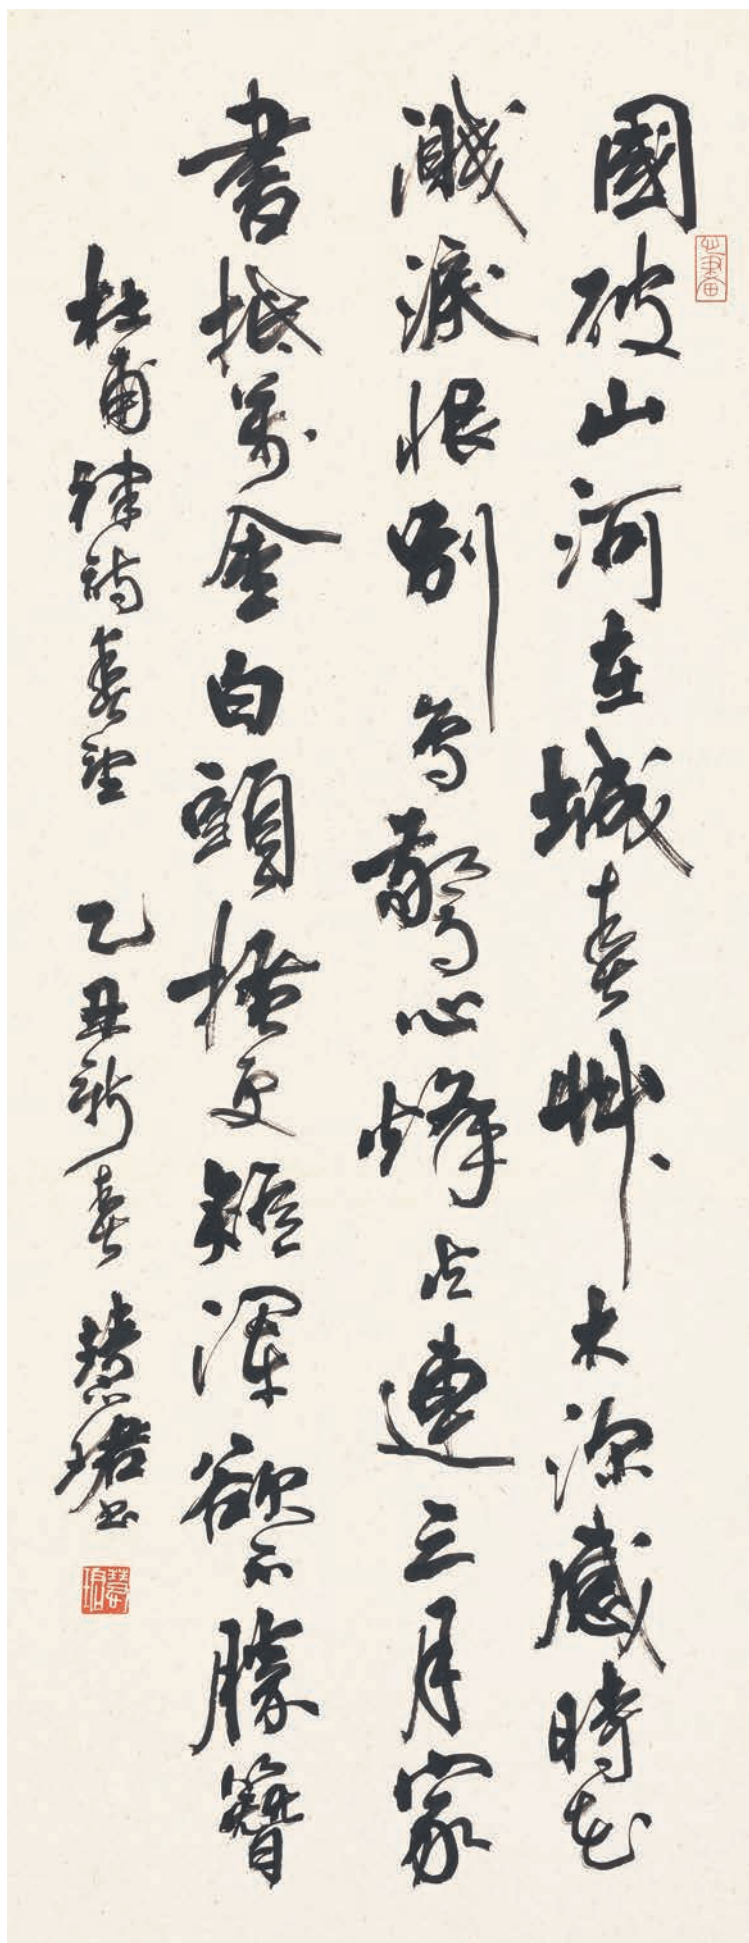 國破山河在城春艸木深感時花
濺淚恨別鳥驚心烽火連三月家
書抵萬金白頭搔更短渾欲不勝簪
杜甫律詩春望 乙丑新春 慧珺書
慧珺